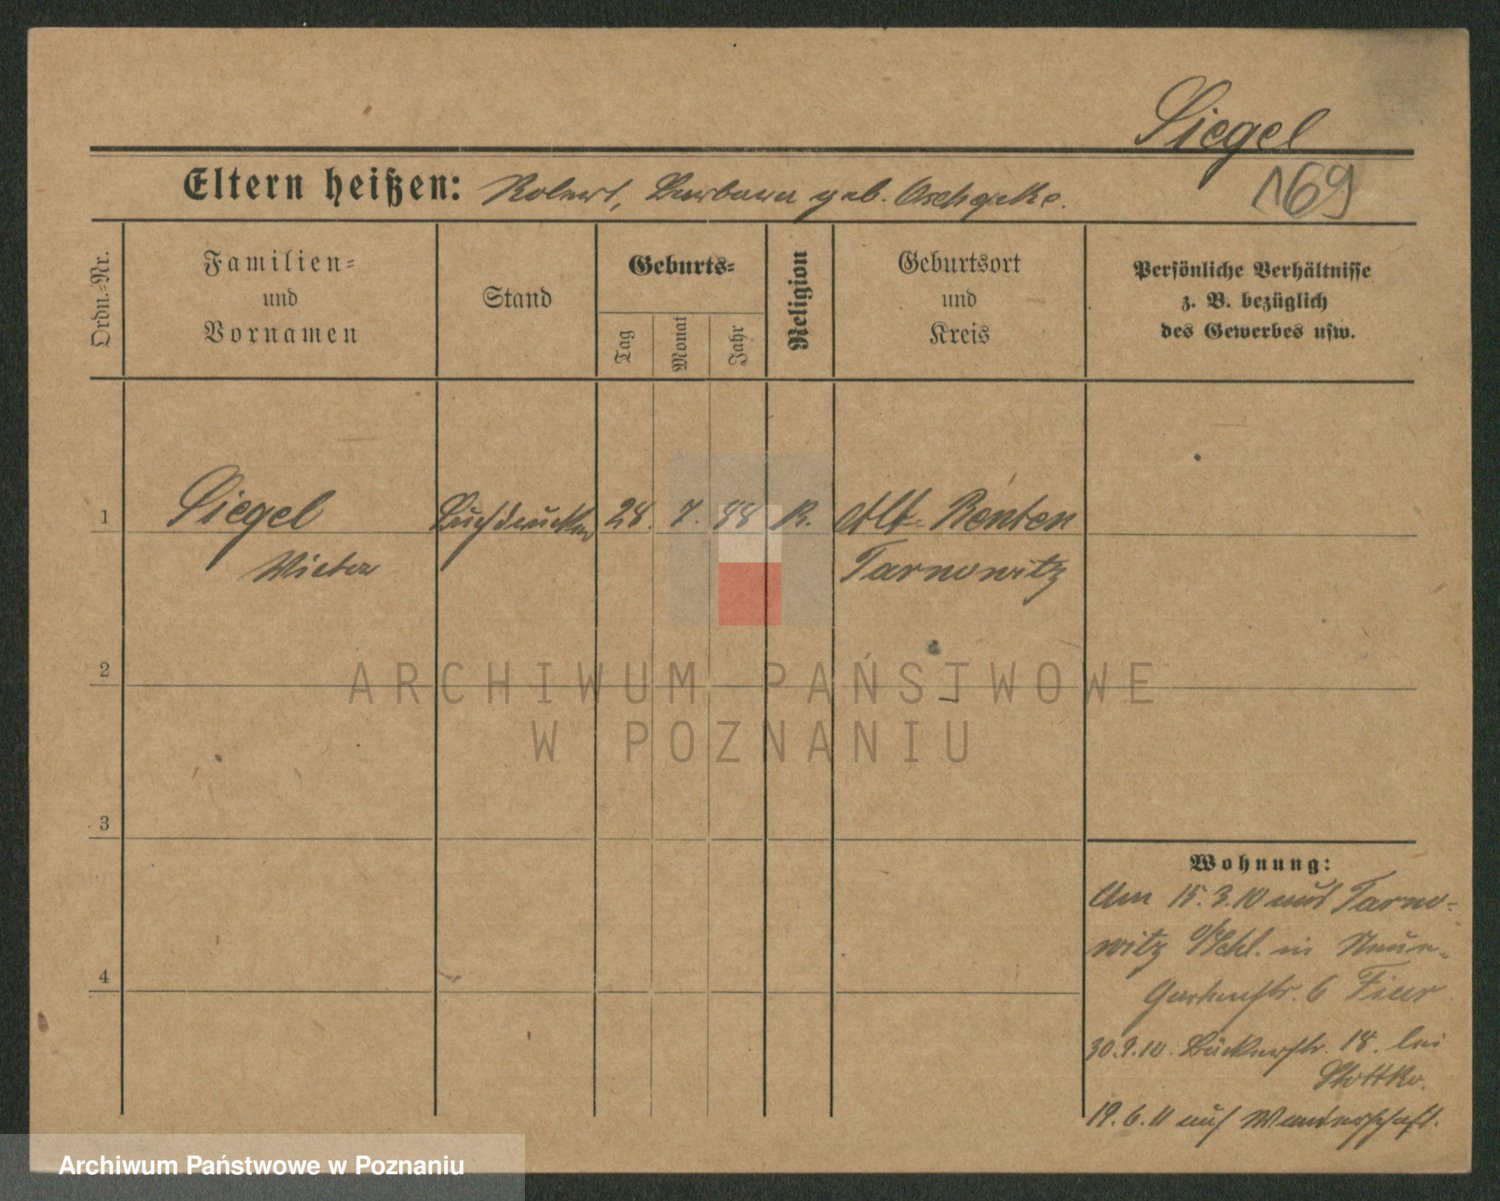 Siegel
169
Eltern heißen: Robert, Barbara geb.
Ordn.-Nr.
Familien-
und
Vornamen
Stand
Geburts-
Tag
Monat
Jahr
Religion
Geburtsort
und
Kreis
Persönliche Verhältnisse
z. B. bezüglich
des Gewerbes usw.
1
Siegel Buchdrucker 28. 7. 88 R. Alt-
Victor Tarnowitz
2
ARCHIWUM PAŃSTWOWE
W POZNANIU
3
Wohnung:
Am 15.3.10 aus Tarno-
witz O/Schl. in
Gartenstr. 6
4
30.9.10. Bäckerstr. 18. bei
19.6.11 auf Wanderschaft.
Archiwum Państwowe w Poznaniu